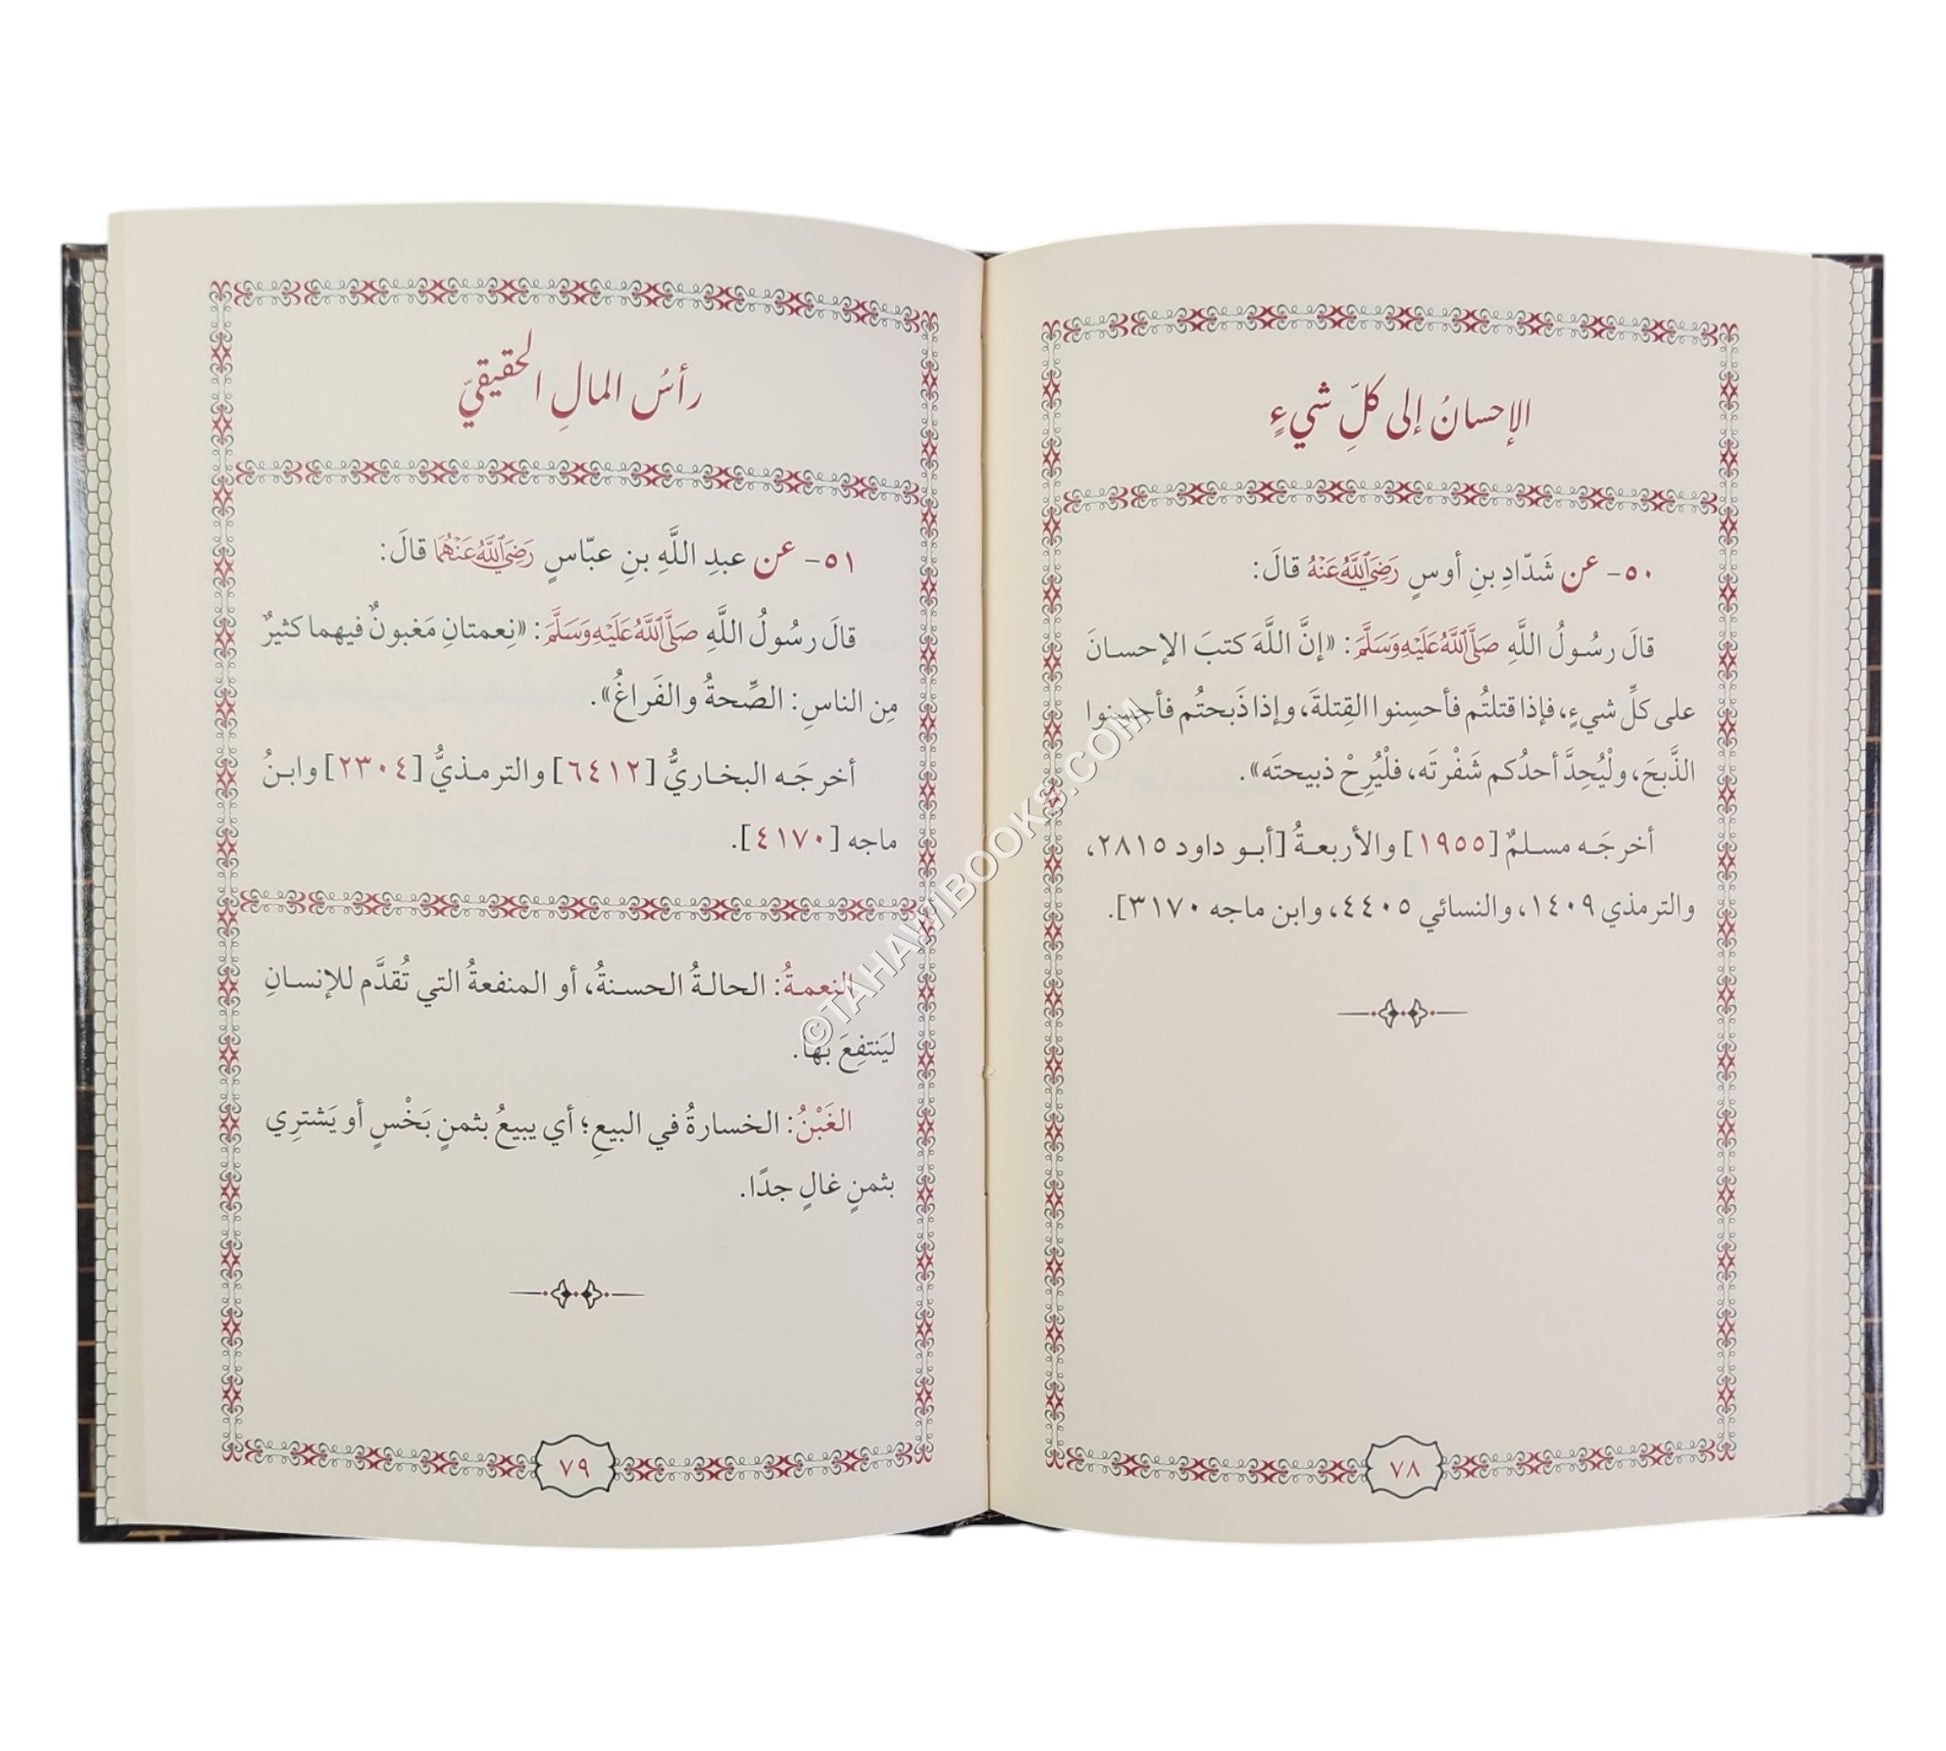 الإحسانُ إلى كلِّ شيءٍ
٥٠- عن شَدّادِ بنِ أوسٍ رَضِيَ ٱللَّهُ عَنْهُ قالَ:
قالَ رسُولُ اللَّهِ صَلَّى ٱللَّهُ عَلَيْهِ وَسَلَّمَ: «إنَّ اللَّهَ كتبَ الإحسانَ
على كلِّ شيءٍ، فإذا قتلتُم فأحسِنوا القِتلةَ، وإذا ذَبحتُم فأحسِنوا
الذَّبحَ، ولْيُحِدَّ أحدُكم شَفْرتَه، فلْيُرِحْ ذبيحتَه».
أخرجَه مسلمٌ [١٩٥٥] والأربعةُ [أبو داود ٢٨١٥،
والترمذي ١٤٠٩، والنسائي ٤٤٠٥، وابن ماجه ٣١٧٠].
٧٨
رأسُ المالِ الحقيقيّ
٥١- عن عبدِ اللَّهِ بنِ عبّاسٍ رَضِيَ ٱللَّهُ عَنْهُمَا قالَ:
قالَ رسُولُ اللَّهِ صَلَّى ٱللَّهُ عَلَيْهِ وَسَلَّمَ: «نِعمتانِ مَغبونٌ فيهما كثيرٌ
مِن الناسِ: الصِّحةُ والفَراغُ».
أخرجَه البخاريُّ [٦٤١٢] والترمذيُّ [٢٣٠٤] وابنُ
ماجه [٤١٧٠].
النعمةُ: الحالةُ الحسنةُ، أو المنفعةُ التي تُقدَّم للإنسانِ
ليَنتفِعَ بها.
الغَبْنُ: الخسارةُ في البيعِ؛ أي يبيعُ بثمنٍ بَخْسٍ أو يَشترِي
بثمنٍ غالٍ جدًا.
٧٩
©TAHAWIBOOKS.COM